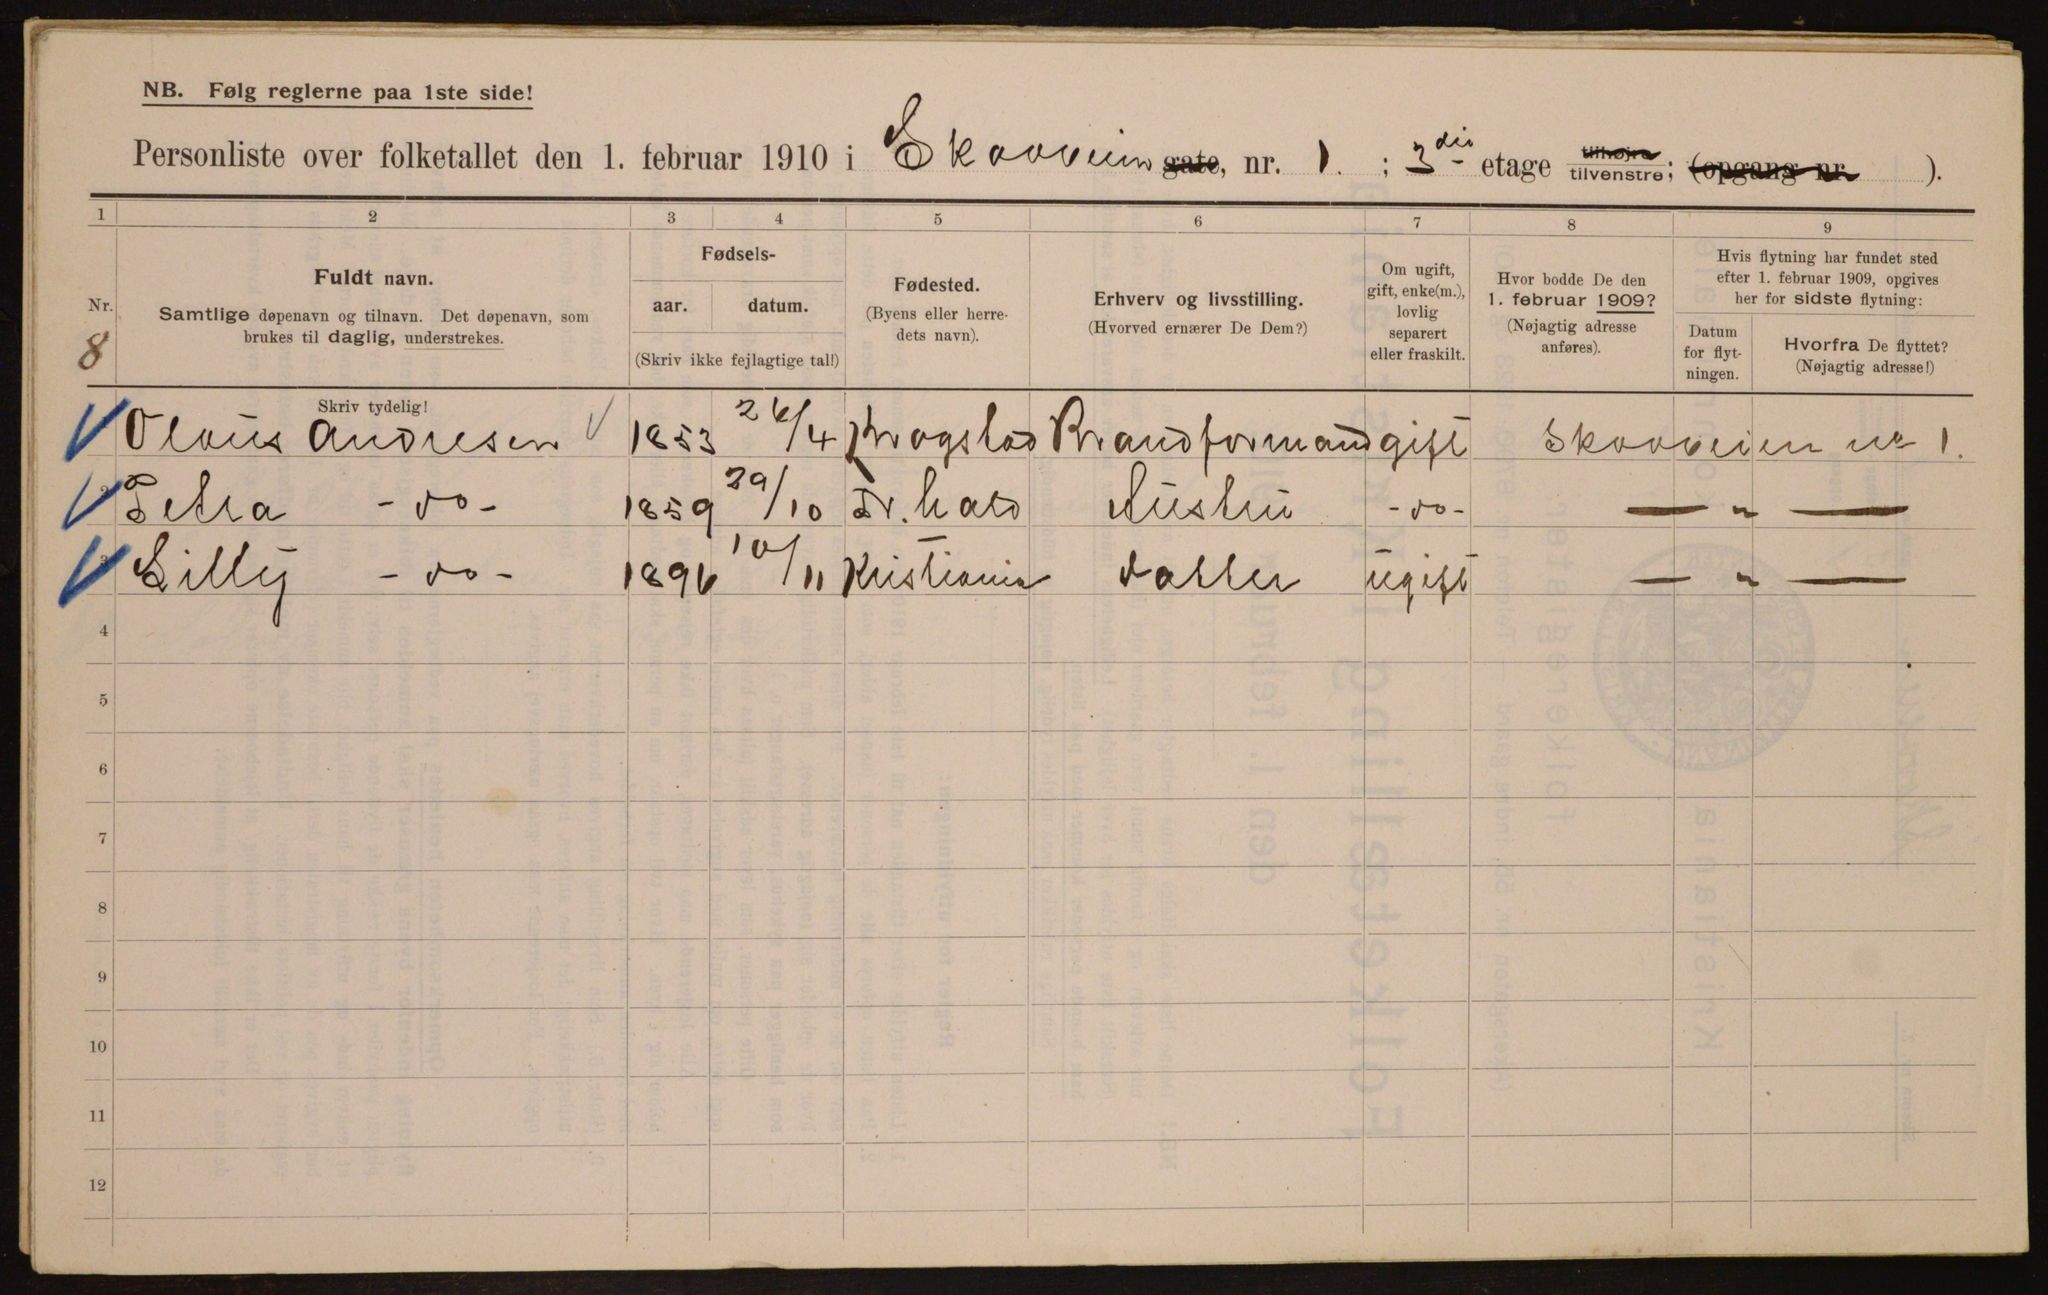 NB. Følg reglerne paa 1ste side!
Personliste over folketallet den 1. februar 1910 i Skovveien gate, nr. 1. ; 3die etage tilhøjre tilvenstre; (opgang nr. ).
1 2 3 4 5 6 7 8 9
Nr.
8
Fuldt navn.
Samtlige døpenavn og tilnavn. Det døpenavn, som
brukes til daglig, understrekes.
Fødsels-
aar. datum.
(Skriv ikke fejlagtige tal!)
Fødested.
(Byens eller herre-
dets navn).
Erhverv og livsstilling.
(Hvorved ernærer De Dem?)
Om ugift,
gift, enke(m.),
lovlig
separert
eller fraskilt.
Hvor bodde De den
1. februar 1909?
(Nøjagtig adresse
anføres).
Hvis flytning har fundet sted
efter 1. februar 1909, opgives
her for sidste flytning:
Datum
for flyt-
ningen.
Hvorfra De flyttet?
(Nøjagtig adresse!)
Skriv tydelig!
Olaus Andresen 1853 26/4 Krogstad Brandformand gift Skovveien no 1.
2 Petra - do - 1859 29/10 Fr.hald Hustru - do - — " —
3 Lilly - do - 1896 10/11 Kristiania datter ugift — " —
4
5
6
7
8
9
10
11
12